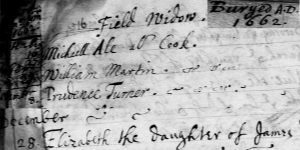 16 Field Widow.
Buryed A.D.
1662.
Michell Ale als Cook.
William Martin.
8. Prudence Turner.
December
28. Elizabeth the daughter of James